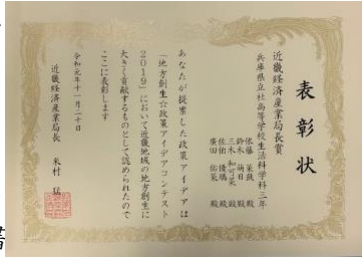 表彰状
近畿経済産業局長賞
兵庫県立社高等学校生活科学科三年
殿
鈴木 萌日 殿
三木 和可菜 殿
殿
殿
あなたが提案した政策アイデアは
「地方創生☆政策アイデアコンテスト
2019」において近畿地域の地方創生に
大きく貢献するものとして認められたので
ここに表彰します
令和元年十一月二十日
近畿経済産業局長 米村 猛
書